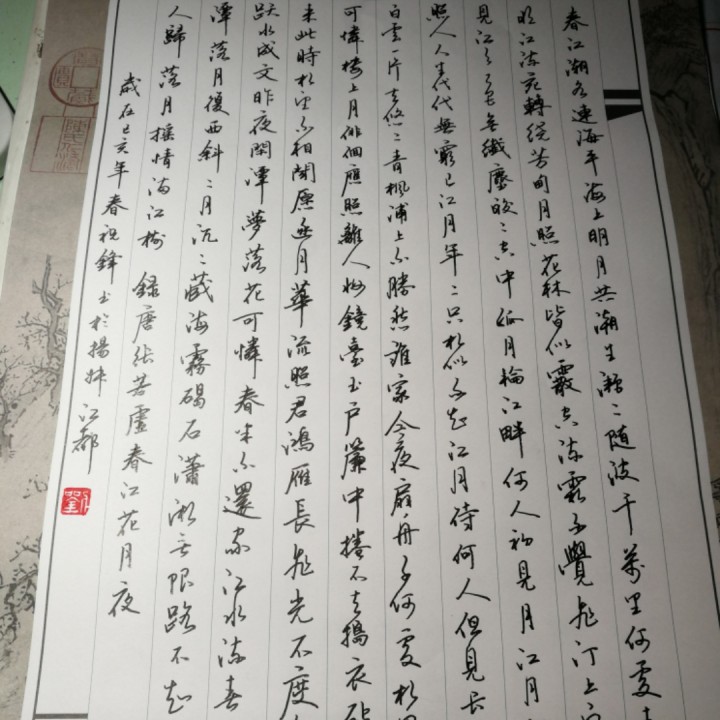 春江潮水連海平海上明月共潮生灧=随波千萬里何處春
明江流宛轉繞芳甸月照花林皆似霰空流霜不覺飛汀上白
見江天一色無纖塵皎=空中孤月輪江畔何人初見月江月
照人人生代代無窮已江月年=只相似不知江月待何人但見長
白雲一片去悠=青楓浦上不勝愁誰家今夜扁舟子何處相思
可憐樓上月徘徊應照離人妝鏡臺玉户簾中捲不去搗衣砧
来此時相望不相聞願逐月華流照君鴻雁長飛光不度
躍水成文昨夜閑潭夢落花可憐春半不還家江水流春
潭落月復西斜=月沉=藏海霧碣石瀟湘無限路不知
人歸落月摇情滿江樹 録唐張若虚春江花月夜
歲在己亥年春祝鋒書於揚州江都
劉